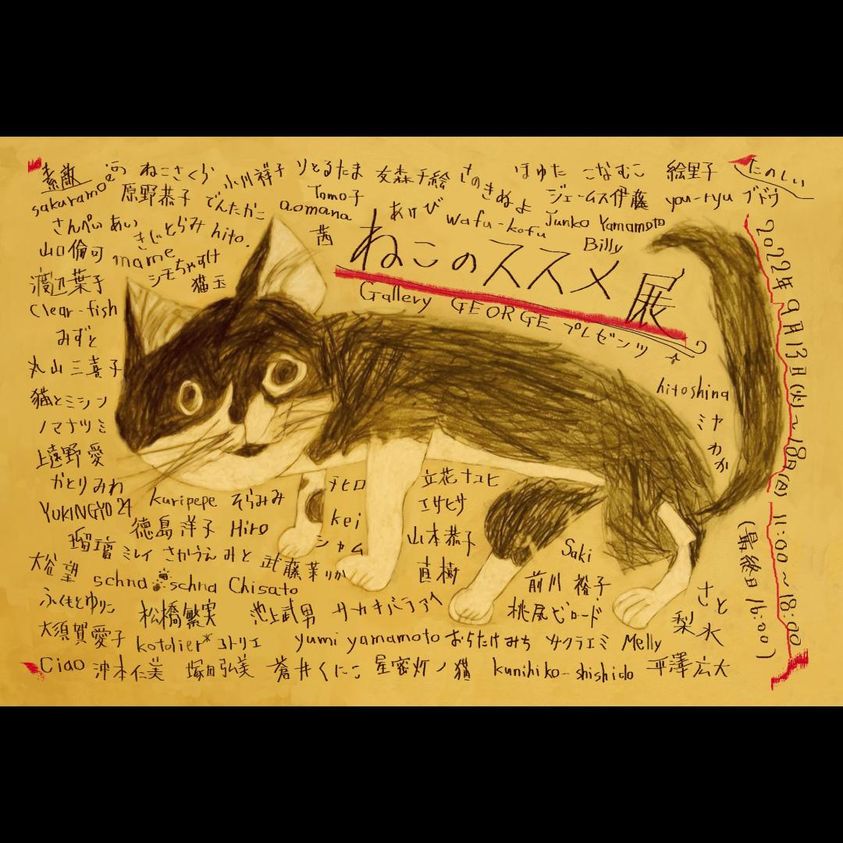 素敵
ねこさくら
小川祥子
りとるたま
女森手絵
さのきぬよ
ほゆた
こなむこ
絵里子
たのしい
原野恭子
でんたかこ
Tomo子
ジェームス伊藤
you-ryu
ブドウ
さんぺいあい
きにとらみ
hito.
aomana
あけび
wafu-kofu
Junko Yamamoto
山口倫可
mame
茜
Billy
シモちゃすけ
渡辺葉子
猫玉
ねこのススメ展
Gallery GEORGE プレゼンツ
2022年9月13日(火)〜18日(日) 11:00〜18:00
(最終日16:00)
Clear-fish
みずと
丸山三喜子
hitoshina
ミヤカカ
猫とミシン
ノマナツミ
上遠野愛
かとりみわ
YUKINGYO24
kuripepe
そらみみ
徳島洋子
Hiro
kei
シャム
立花ナユヒ
エサヒサ
山本恭子
直樹
ミレイ
さかうえみと
武藤茉りか
Saki
大谷望
schna schna
Chisato
前川裕子
桃尻ビロード
さと
梨水
ふくもとゆりこ
松橋繁実
池上武男
サカキバラアヘ
大須賀愛子
kotolier*コトリエ
yumi yamamoto
おらたけみち
サクラエミ
Melly
Ciao
沖本仁美
塚田弘美
蒼井くにこ
星密灯ノ猫
kunihiko-shishido
平澤広大